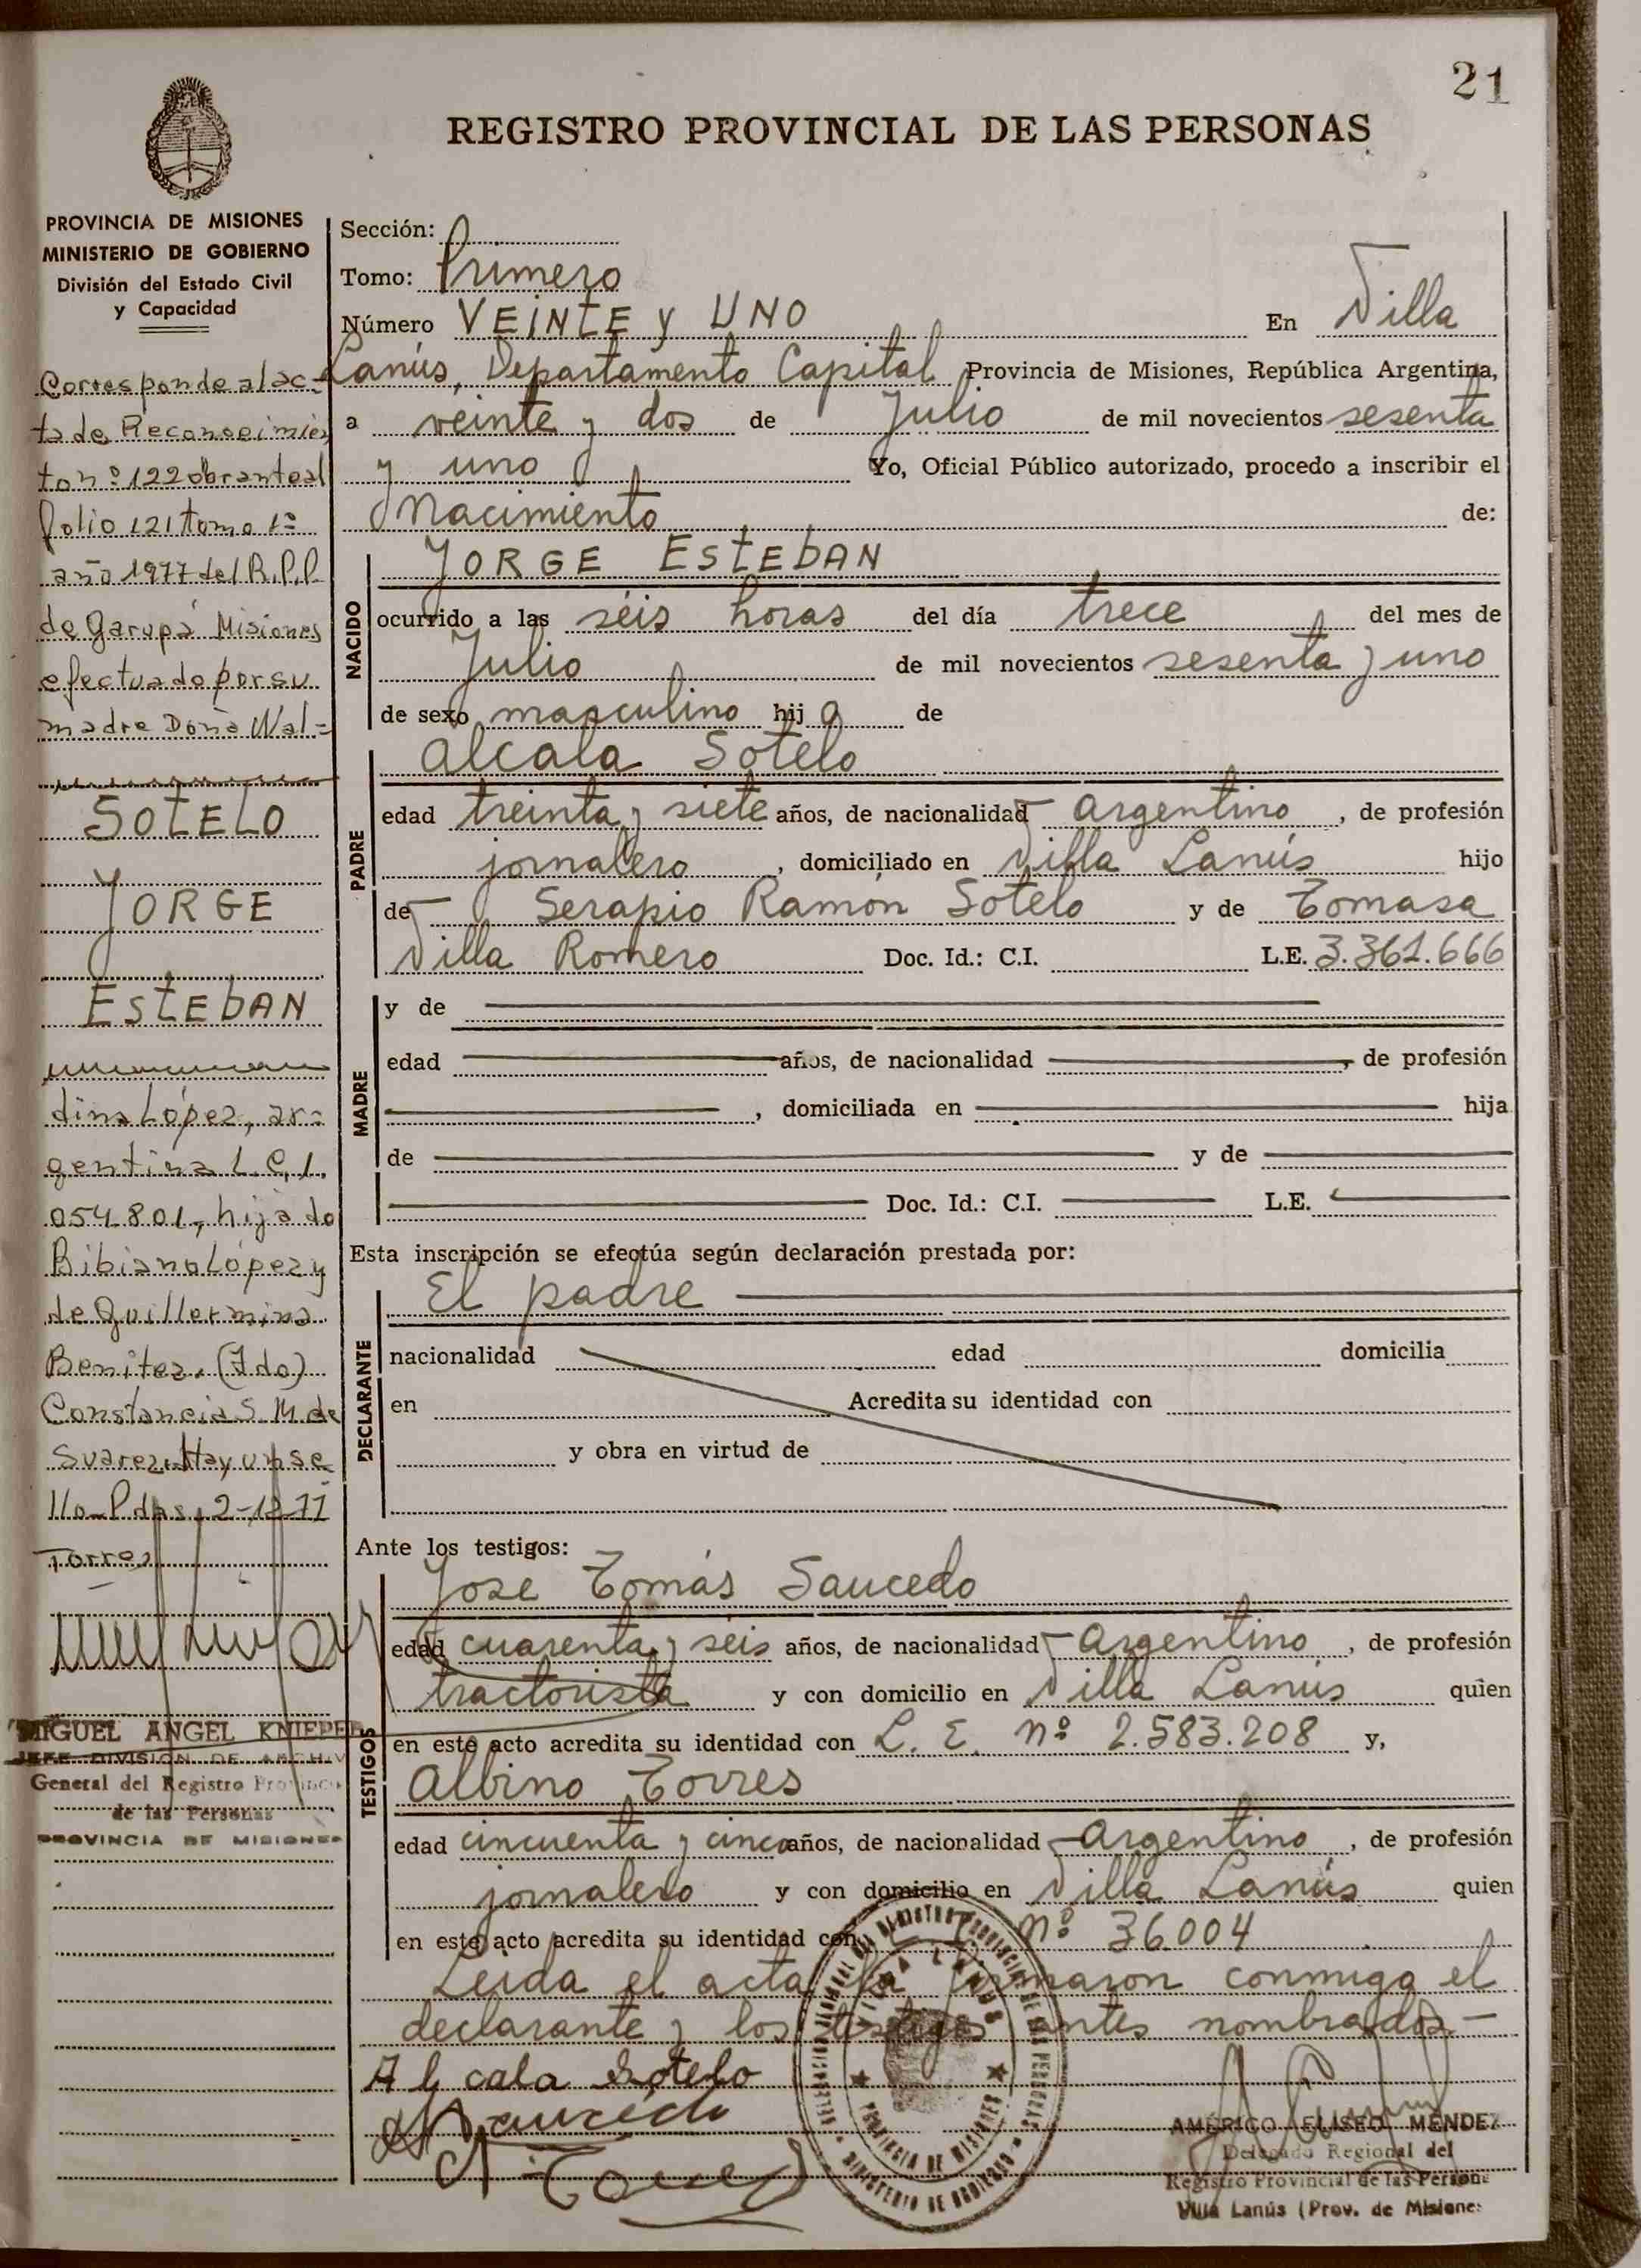 21
REGISTRO PROVINCIAL DE LAS PERSONAS
PROVINCIA DE MISIONES
MINISTERIO DE GOBIERNO
División del Estado Civil
y Capacidad
Corresponde al ac-
ta de Reconocimien
to nº 122 obrante al
folio 121 tomo 1º
año 1977 del R.P.P.
de Garupá Misiones
efectuado por su
madre Doña Wal=
SOTELO
JORGE
ESTEBAN
dina López, ar=
gentina L.C. 1.
054.801, hija de
Bibiano López y
de Guillermina
Benitez. (Fdo)
Constancia S. M. de
Suarez. Hay un se
llo- Pdas, 2-12-77
Torres
MIGUEL ANGEL KNIEPER
JEFE DIVISION DE ARCHIV
General del Registro Provinc
de las Personas
PROVINCIA DE MISIONES
Sección:
Tomo: Primero
Número VEINTE y UNO En Villa
Lanús, Departamento Capital Provincia de Misiones, República Argentina,
a veinte y dos de Julio de mil novecientos sesenta
y uno Yo, Oficial Público autorizado, procedo a inscribir el
Nacimiento de:
NACIDO
JORGE ESTEBAN
ocurrido a las seis horas del día trece del mes de
Julio de mil novecientos sesenta y uno
de sexo masculino hij o de
PADRE
Alcala Sotelo
edad treinta y siete años, de nacionalidad Argentino, de profesión
jornalero, domiciliado en Villa Lanús hijo
de Serapio Ramón Sotelo y de Tomasa
Villa Romero Doc. Id.: C.I. L.E. 3.361.666
MADRE
y de
edad años, de nacionalidad, de profesión
, domiciliada en hija
de y de
Doc. Id.: C.I. L.E.
Esta inscripción se efectúa según declaración prestada por:
DECLARANTE
El padre
nacionalidad edad domicilia
en Acredita su identidad con
y obra en virtud de
Ante los testigos:
TESTIGOS
Jose Tomás Saucedo
edad cuarenta y seis años, de nacionalidad Argentino, de profesión
tractorista y con domicilio en Villa Lanús quien
en este acto acredita su identidad con L. E. nº 2.583.208 y,
Albino Torres
edad cincuenta y cinco años, de nacionalidad Argentino, de profesión
jornalero y con domicilio en Villa Lanús quien
en este acto acredita su identidad con nº 36.004
Leida el acta la firmaron conmigo el
declarante y los testigos antes nombrados.-
Alcala Sotelo
Saucedo
A. Torres
PROVINCIA DE MISIONES
MINISTERIO DE GOBIERNO
AMÉRICO ELISEO MENDEZ
Delegado Regional del
Registro Provincial de las Persona
Villa Lanús (Prov. de Misiones